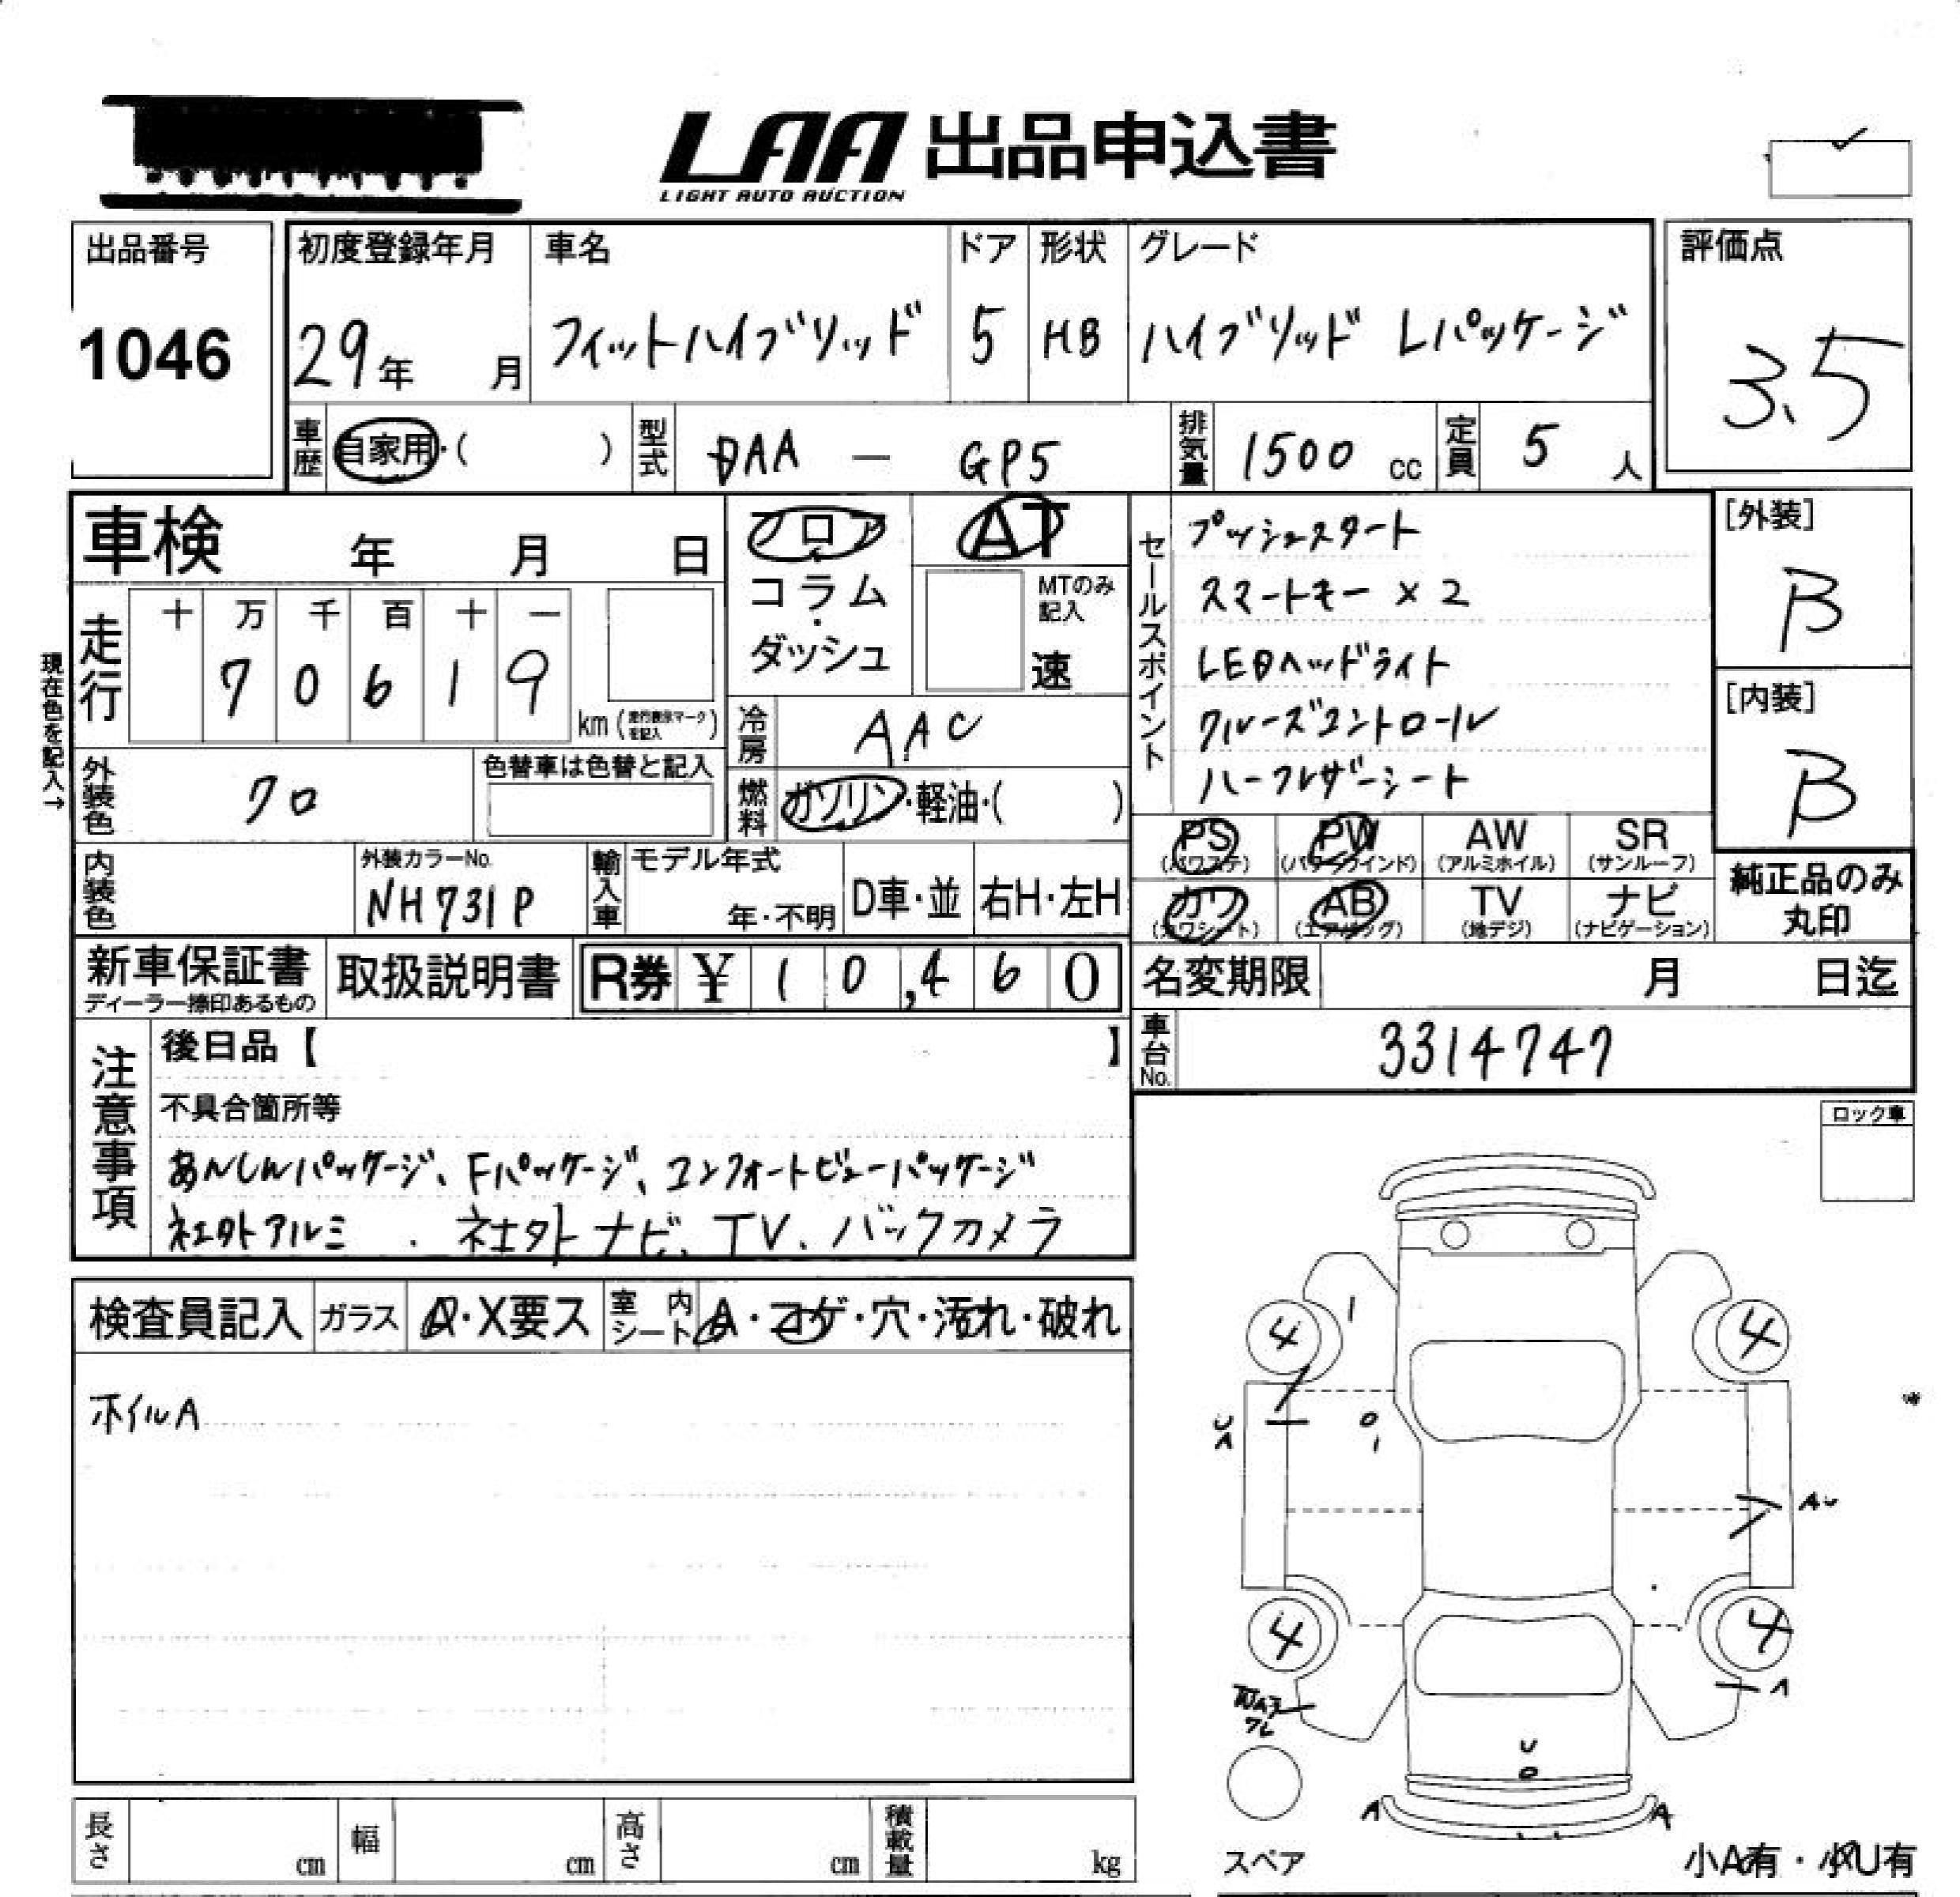 LAA 出品申込書
LIGHT AUTO AUCTION
出品番号
1046
初度登録年月
29年 月
車名
フィットハイブリッド
ドア
5
形状
HB
グレード
ハイブリッド Lパッケージ
評価点
3.5
車歴 自家用・( )
型式 DAA — GP5
排気量 1500 cc
定員 5 人
車検 年 月 日
フロア
コラム
・
ダッシュ
AT
MTのみ
記入
速
現在色を記入→
走行
十 万 千 百 十 一
7 0 6 1 9
km (走行表示マークを記入)
冷房 AAC
外装色 クロ
色替車は色替と記入
燃料 ガソリン・軽油・( )
セールスポイント
プッシュスタート
スマートキー × 2
LEDヘッドライト
クルーズコントロール
ハーフレザーシート
[外装]
B
[内装]
B
PS
(パワステ)
PW
(パワーウインド)
AW
(アルミホイル)
SR
(サンルーフ)
カワ
(カワシート)
AB
(エアバッグ)
TV
(地デジ)
ナビ
(ナビゲーション)
純正品のみ
丸印
内装色
外装カラーNo.
NH731P
輸入車
モデル年式
年・不明
D車・並
右H・左H
新車保証書
ディーラー捺印あるもの
取扱説明書
R券 ¥ 1 0 , 4 6 0
名変期限 月 日迄
車台No. 3314747
注意事項
後日品【 】
不具合箇所等
あんしんパッケージ、Fパッケージ、コンフォートビューパッケージ
社外アルミ . 社外ナビ、TV、バックカメラ
ロック車
検査員記入
ガラス
A・X要ス
室内シート
A・コゲ・穴・汚れ・破れ
ホイルA
4
4
UA
AU
4
4
A
U
A
A
スペア
小A有・小U有
長さ cm
幅 cm
高さ cm
積載量 kg